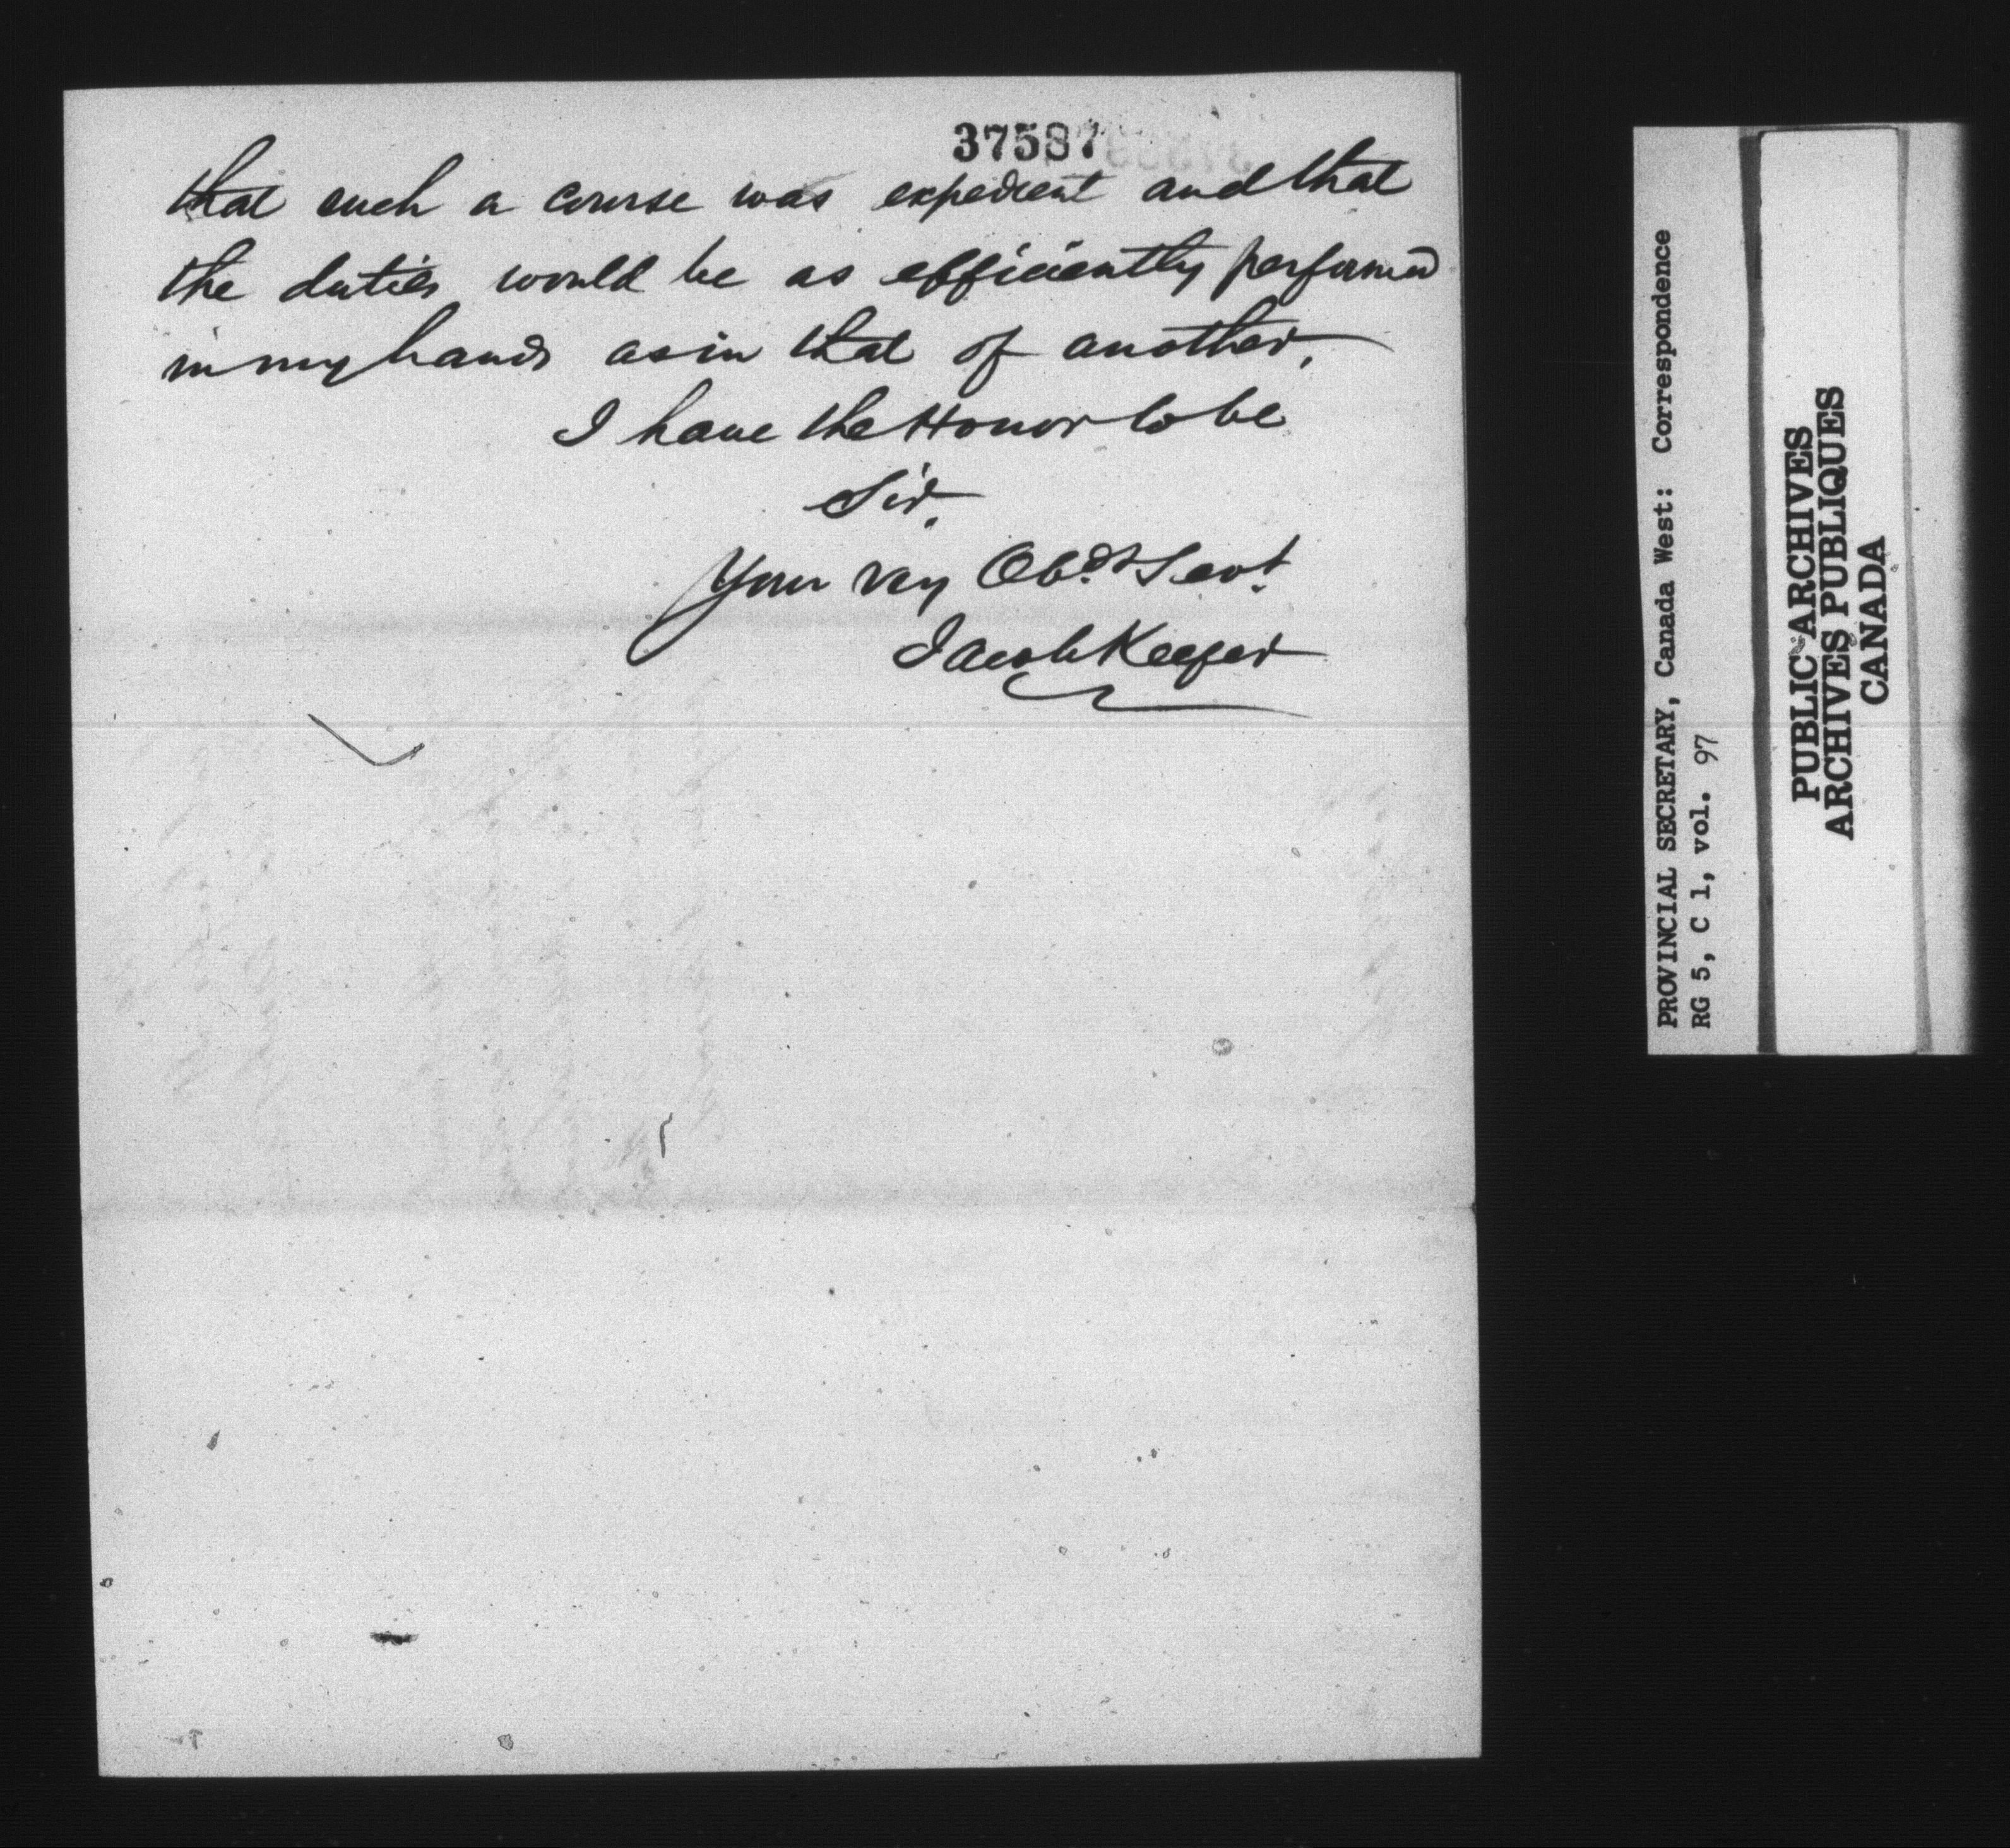 37587
that such a course was expedient and that
the duties would be as efficiently performed
in my hands as in that of another,
I have the Honor to be
Sir,
Your very Obdt Servt
Jacob Keefer
PROVINCIAL SECRETARY, Canada West: Correspondence
RG 5, C 1, vol. 97
PUBLIC ARCHIVES
ARCHIVES PUBLIQUES
CANADA